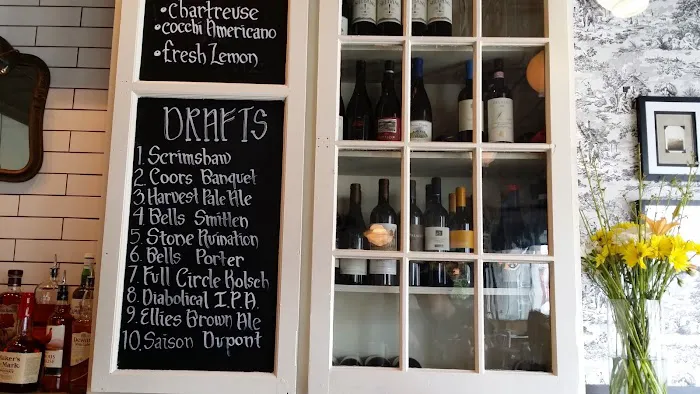 •Chartreuse
•Cocchi Americano
•fresh Lemon
DRAFTS
1. Scrimshaw
2. Coors Banquet
3 Harvest Pale Ale
4 Bells Smitten
5. Stone Ruination
6. Bells Porter
7. Full Circle Kolsch
8. Diabolical I.P.A.
9. Ellies Brown Ale
10. Saison Dupont